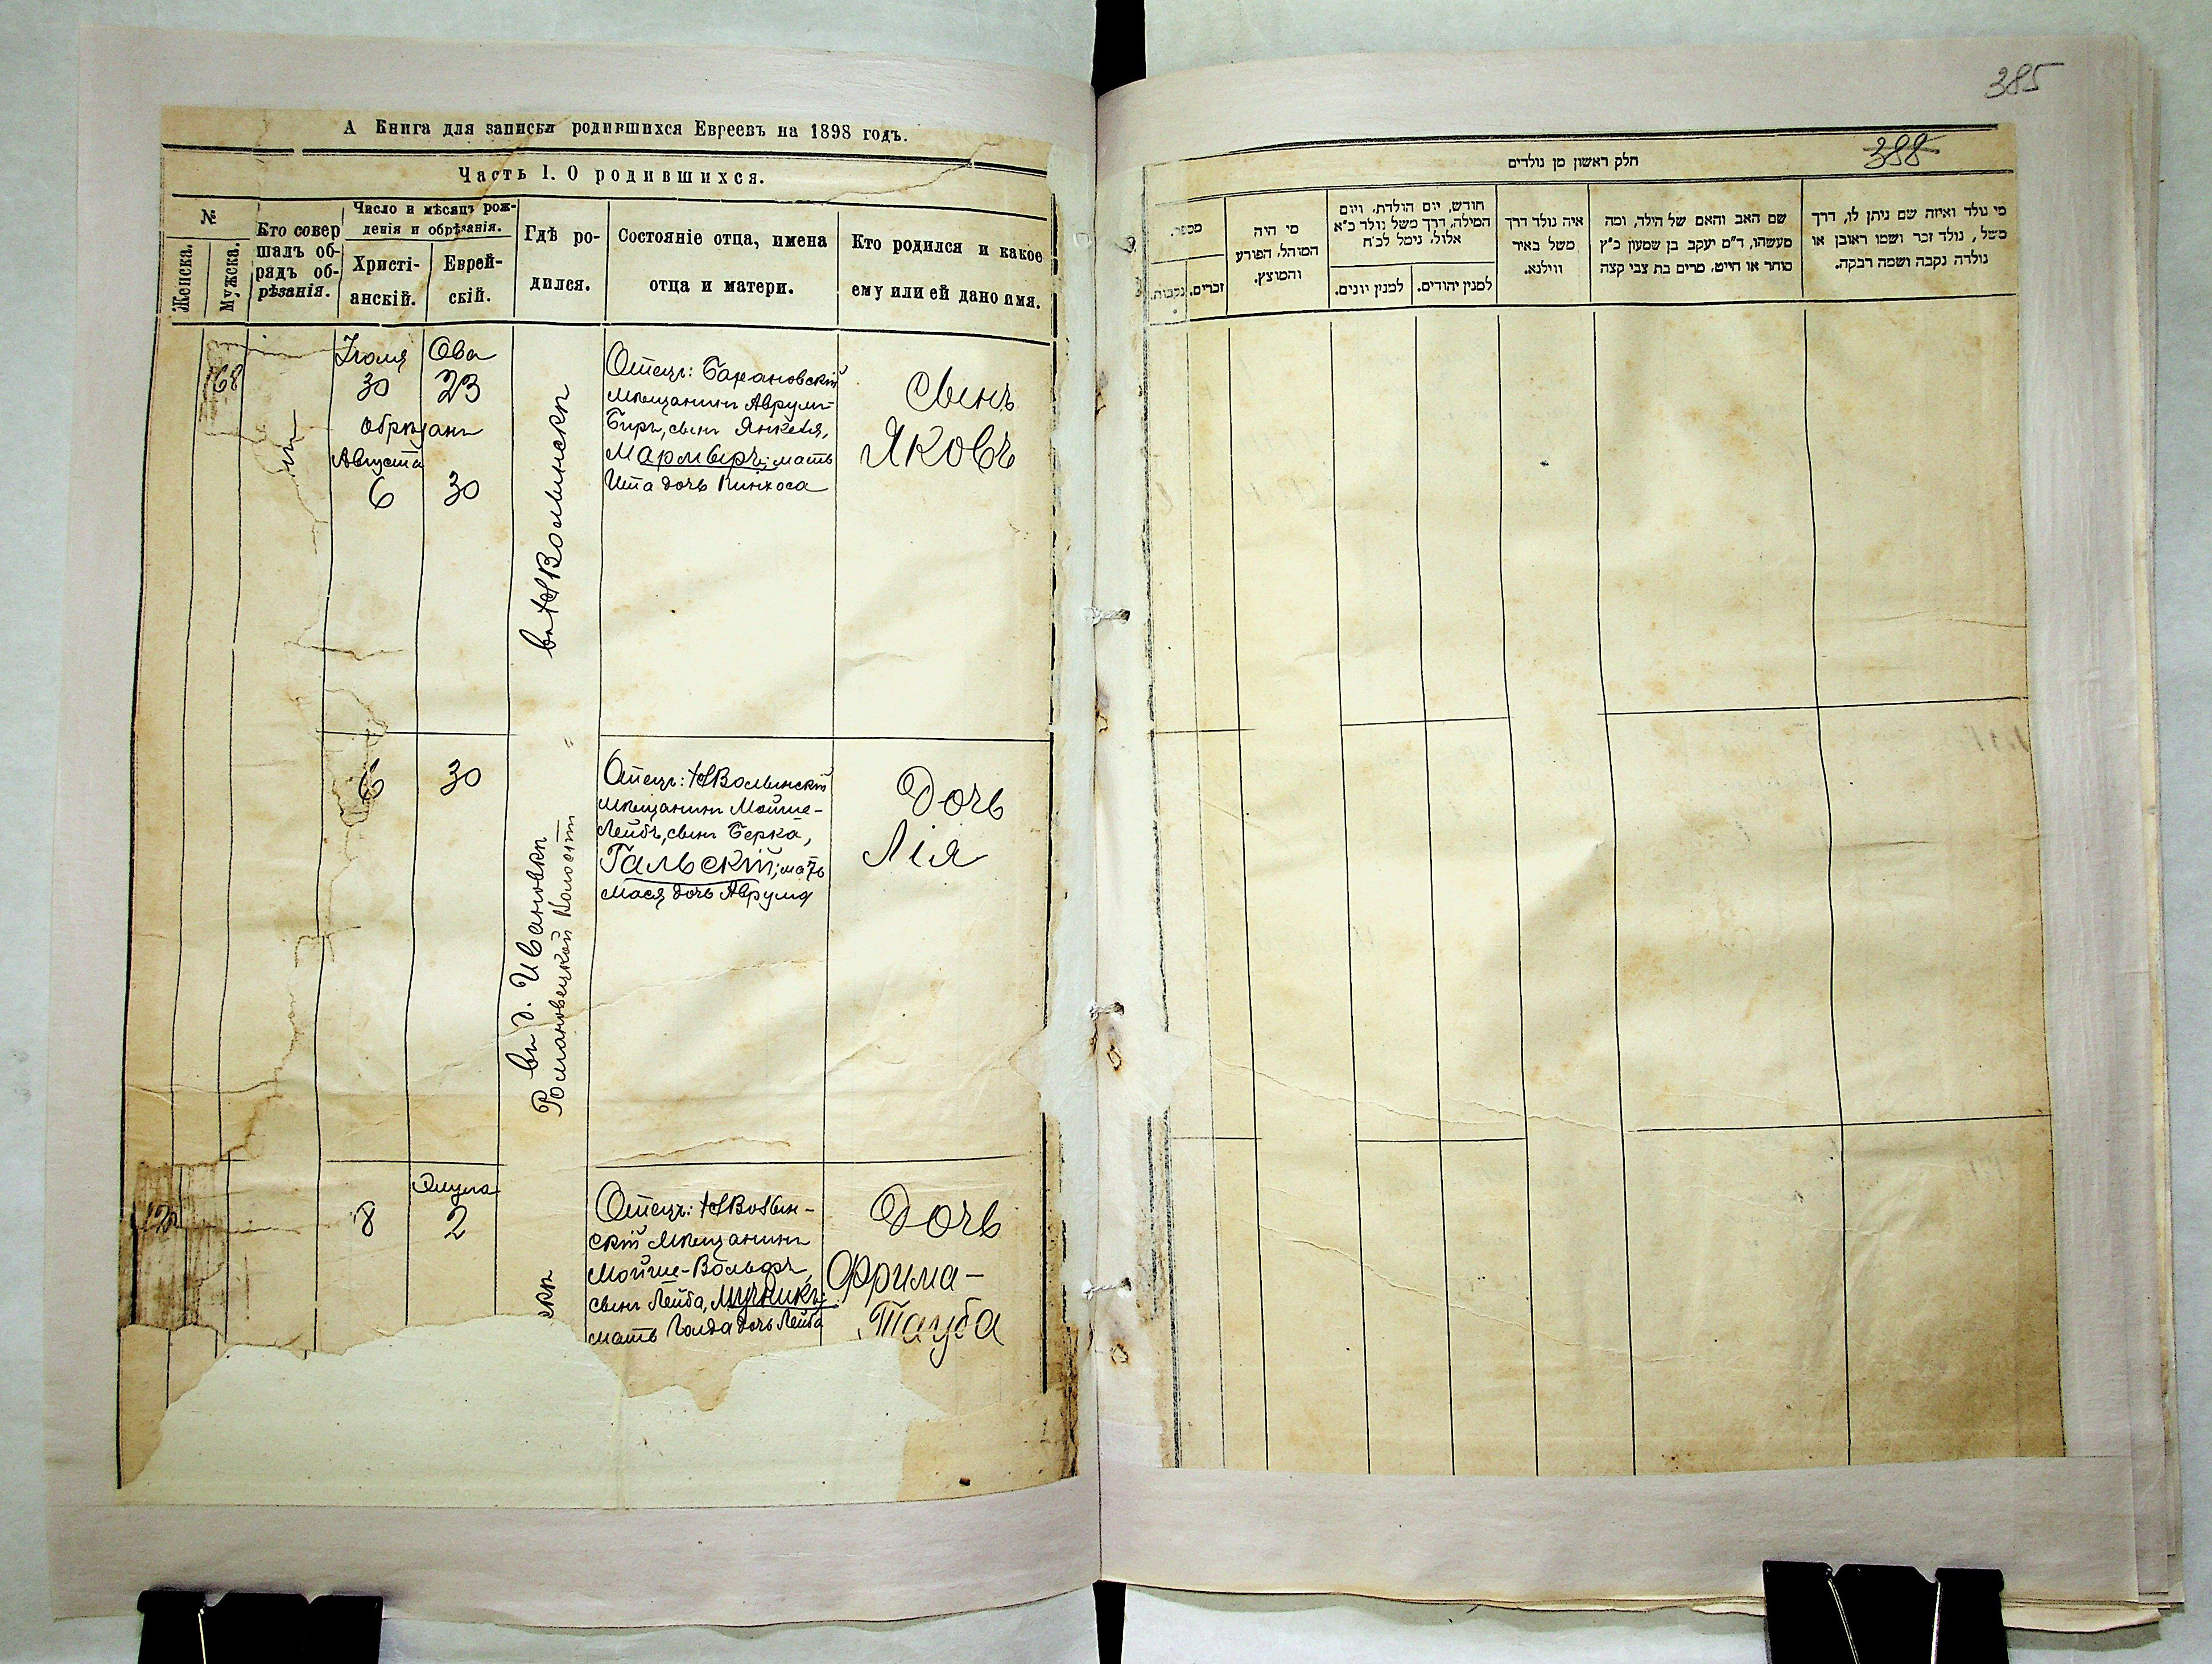 А Книга для записки родившихся Евреевъ на 1898 годъ.
Часть I. О родившихся.
№
Женска.
Мужска.
Кто совер
шалъ об-
рядъ об-
рѣзанія.
Число и мѣсяцъ рож-
денія и обрѣзанія.
Христі-
анскій.
Еврей-
скій.
Гдѣ ро-
дился.
Состояніе отца, имена
отца и матери.
Кто родился и какое
ему или ей дано имя.
68
Іюля
30
Ова
23
обрѣзанъ
Августа
6
30
въ НВолынскѣ
Отецъ: Барановскій
мѣщанинъ Аврумъ-
Беръ, сынъ Янкеля,
мать
Ита дочь Пинхоса
Сынъ
Яковъ
6
30
въ д. Ивановкѣ
Романовецкой Волости
Отецъ: НВолынскій
мѣщанинъ Мойше-
Лейбъ, сынъ Берка,
Гальскій; мать
Мася дочь Аврума
Дочь
Лія
8
Элула
2
скѣ
Отецъ: НВолын-
скій мѣщанинъ
Мойше-Вольфъ,
сынъ Лейба, Мучникъ;
мать Голда дочь Лейба
Дочь
Фрима-
Тауба
385
388
חלק ראשון מן נולדים
מי נולד ואיזה שם ניתן לו, דרך
משל, נולד זכר ושמו ראובן או
נולדה נקבה ושמה רבקה.
שם האב והאם של הילד, ומה
מעשהו, ד"מ יעקב בן שמעון כ"ץ
סוחר או חייט, מרים בת צבי קצה
איה נולד דרך
משל באיר
ווילנא.
חודש, יום הולדת, ויום
המילה, דרך משל נולד כ"א
אלול, נימל לכ"ח
למנין יהודים.
למנין יונים.
מי היה
המוהל, הפורע
והמוצץ.
מספר.
זכרים.
נקבות.